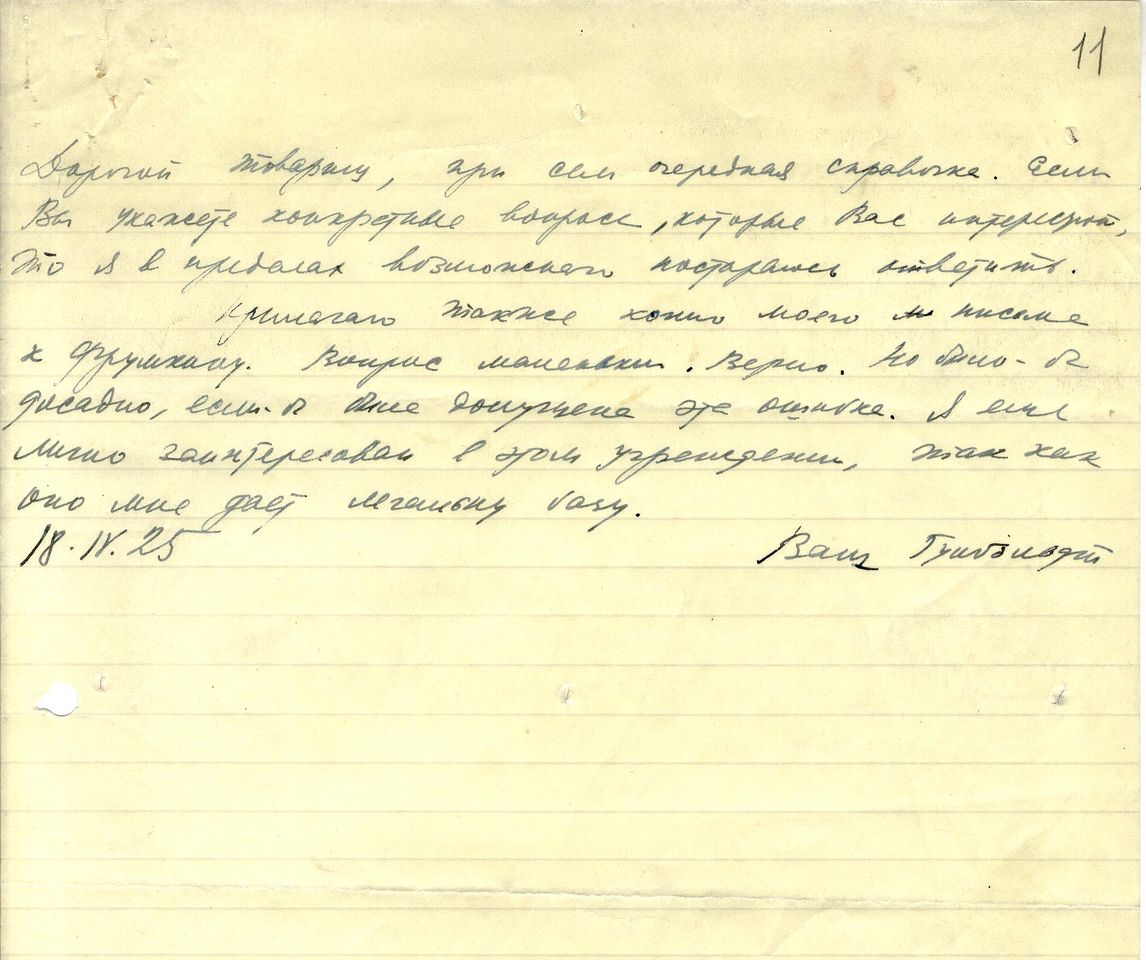 11
Дорогой товарищ, при сем очередная справочка. Если
Вы укажете конкретные вопросы, которые Вас интересуют,
то я в пределах возможного постараюсь ответить.
Прилагаю также копию моего письма
к Фрумкину. Вопрос маленький. Верно. Но было-бы
досадно, если-б была допущена эта ошибка. Я еще
лично заинтересован в этом учреждении, так как
оно мне дает легальную базу.
18.IV.25
Ваш